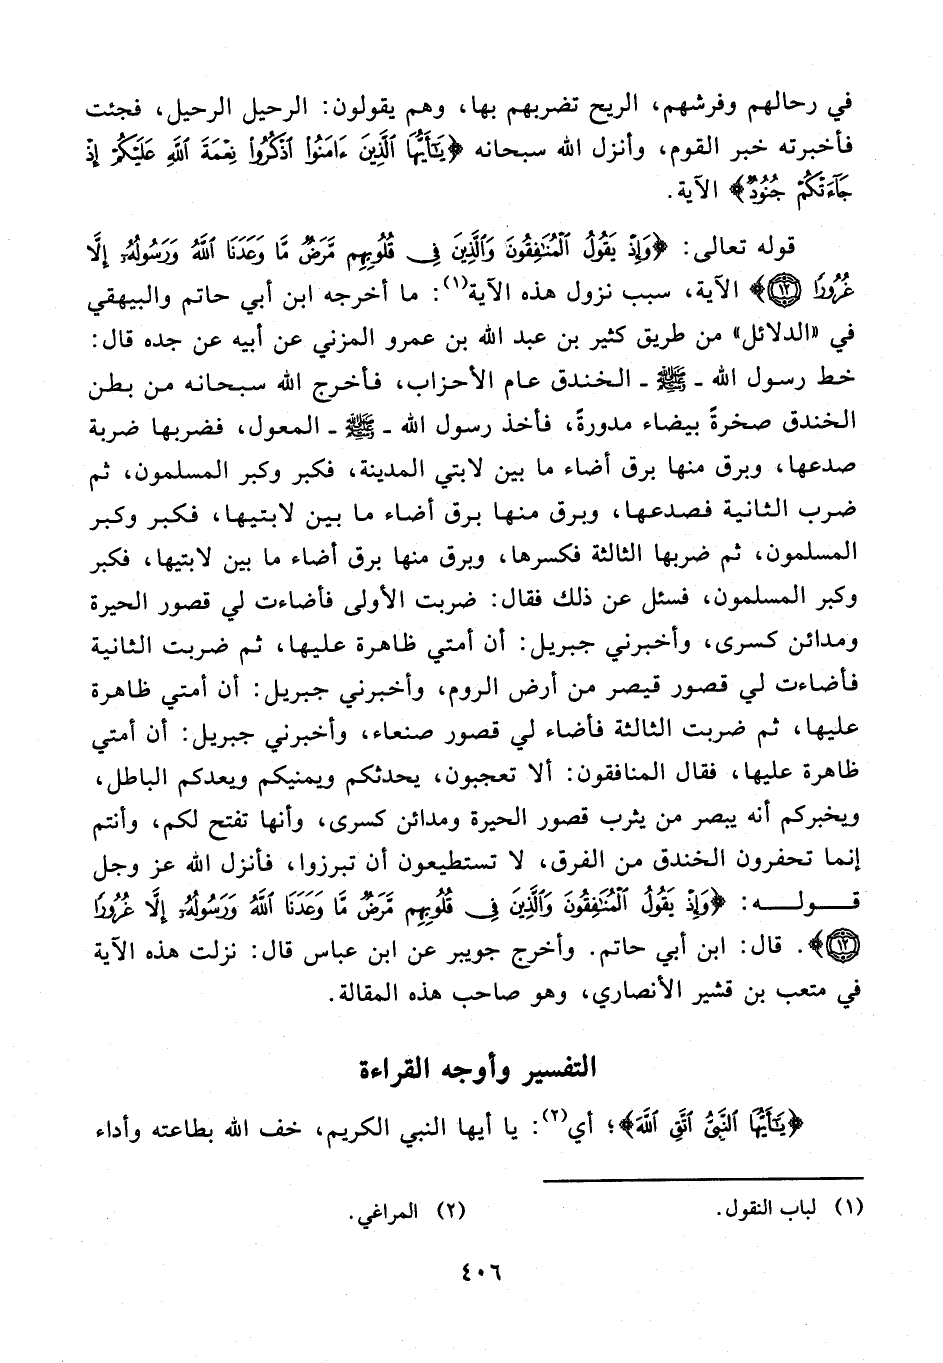 في رحالهم وفرشهم، الريح تضربهم بها، وهم يقولون: الرحيل الرحيل، فجئت
فأخبرته خبر القوم، وأنزل الله سبحانه ﴿يَٰٓأَيُّهَا ٱلَّذِينَ ءَامَنُوا۟ ٱذْكُرُوا۟ نِعْمَةَ ٱللَّهِ عَلَيْكُمْ إِذْ
جَآءَتْكُمْ جُنُودٌ﴾ الآية.
قوله تعالى: ﴿وَإِذْ يَقُولُ ٱلْمُنَٰفِقُونَ وَٱلَّذِينَ فِى قُلُوبِهِم مَّرَضٌ مَّا وَعَدَنَا ٱللَّهُ وَرَسُولُهُۥٓ إِلَّا
غُرُورًا ١٢﴾ الآية، سبب نزول هذه الآية(١): ما أخرجه ابن أبي حاتم والبيهقي
في «الدلائل» من طريق كثير بن عبد الله بن عمرو المزني عن أبيه عن جده قال:
خط رسول الله ـ ﷺ ـ الخندق عام الأحزاب، فأخرج الله سبحانه من بطن
الخندق صخرةً بيضاء مدورةً، فأخذ رسول الله ـ ﷺ ـ المعول، فضربها ضربة
صدعها، وبرق منها برق أضاء ما بين لابتي المدينة، فكبر وكبر المسلمون، ثم
ضرب الثانية فصدعها، وبرق منها برق أضاء ما بين لابتيها، فكبر وكبر
المسلمون، ثم ضربها الثالثة فكسرها، وبرق منها برق أضاء ما بين لابتيها، فكبر
وكبر المسلمون، فسئل عن ذلك فقال: ضربت الأولى فأضاءت لي قصور الحيرة
ومدائن كسرى، وأخبرني جبريل: أن أمتي ظاهرة عليها، ثم ضربت الثانية
فأضاءت لي قصور قيصر من أرض الروم، وأخبرني جبريل: أن أمتي ظاهرة
عليها، ثم ضربت الثالثة فأضاء لي قصور صنعاء، وأخبرني جبريل: أن أمتي
ظاهرة عليها، فقال المنافقون: ألا تعجبون، يحدثكم ويمنيكم ويعدكم الباطل،
ويخبركم أنه يبصر من يثرب قصور الحيرة ومدائن كسرى، وأنها تفتح لكم، وأنتم
إنما تحفرون الخندق من الفرق، لا تستطيعون أن تبرزوا، فأنزل الله عز وجل
قـولـه: ﴿وَإِذْ يَقُولُ ٱلْمُنَٰفِقُونَ وَٱلَّذِينَ فِى قُلُوبِهِم مَّرَضٌ مَّا وَعَدَنَا ٱللَّهُ وَرَسُولُهُۥٓ إِلَّا غُرُورًا
١٢﴾. قال: ابن أبي حاتم. وأخرج جويبر عن ابن عباس قال: نزلت هذه الآية
في متعب بن قشير الأنصاري، وهو صاحب هذه المقالة.
التفسير وأوجه القراءة
﴿يَٰٓأَيُّهَا ٱلنَّبِىُّ ٱتَّقِ ٱللَّهَ﴾؛ أي(٢): يا أيها النبي الكريم، خف الله بطاعته وأداء
(١) لباب النقول.
(٢) المراغي.
٤٠٦